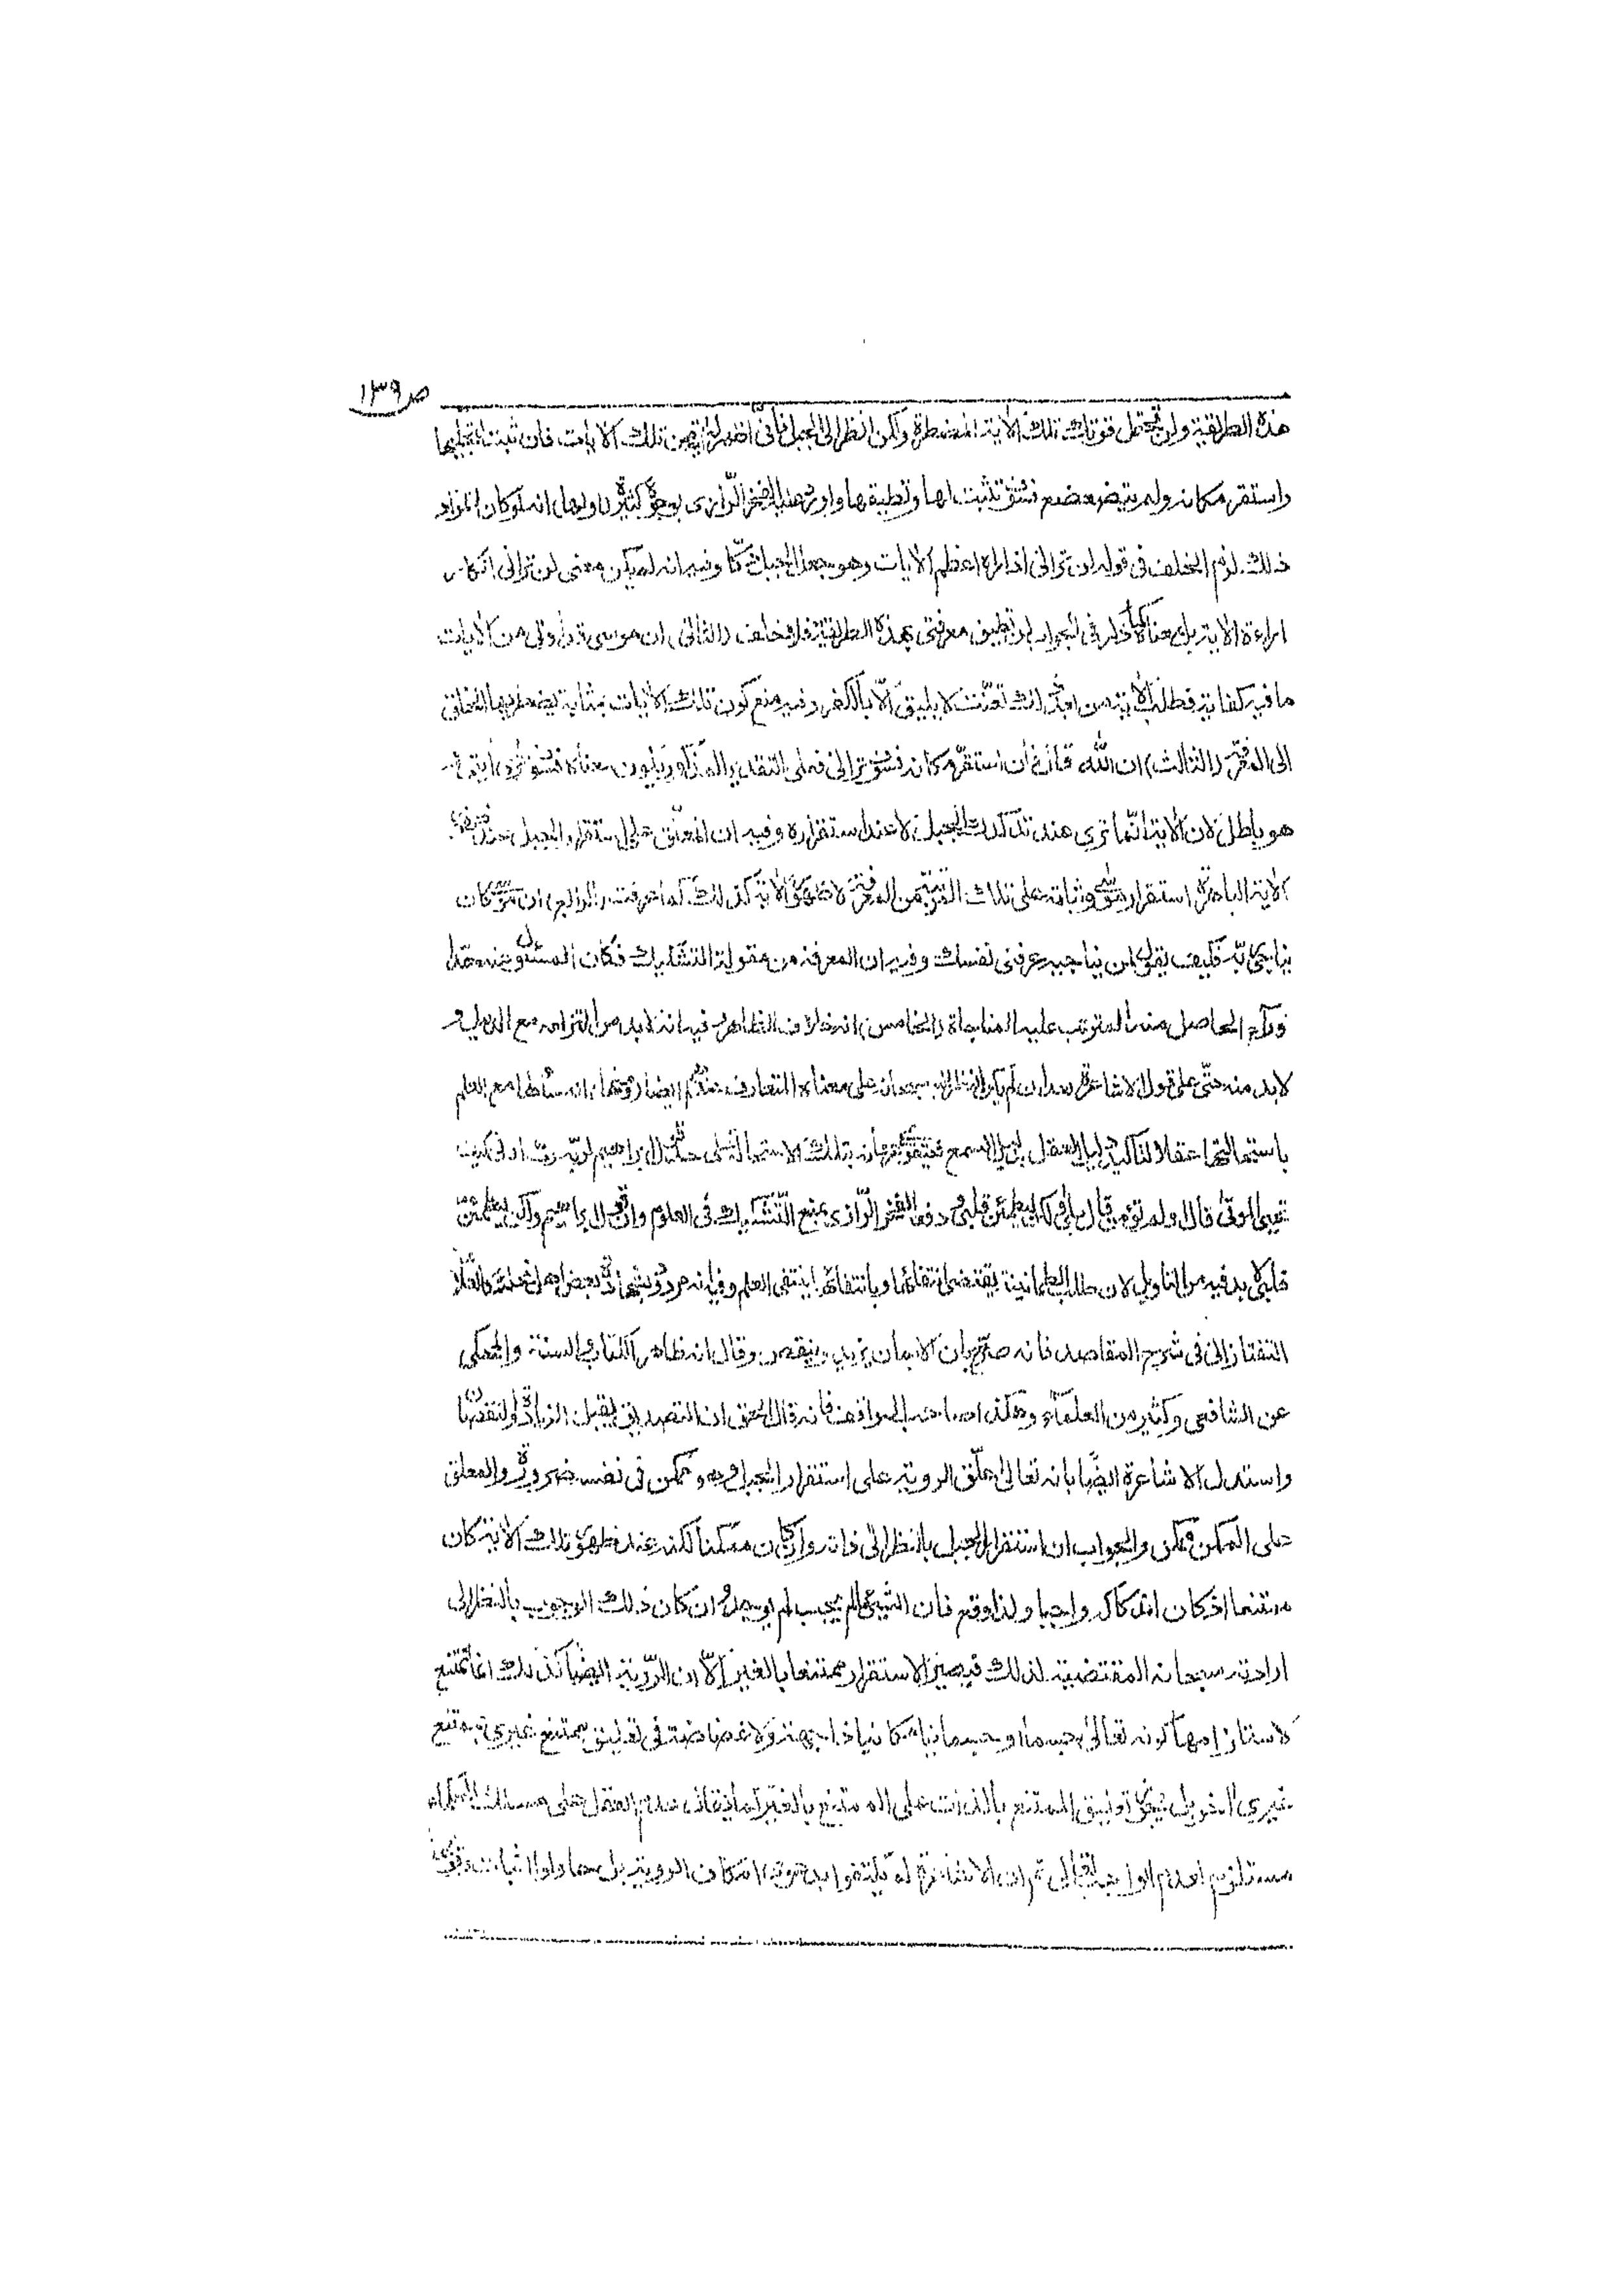 ص ١٣٩
هذه الطريقة ولن تحتمل قوتك تلك الآية المضطرة ولكن انظر الى الجبل فانى اظهر له آية من تلك الايات فان ثبت لتجليها
واستقر مكانه ولم يتضعضع فسوف تثبت لها وتطيقها واورد عليه الفخر الرازى بوجوه كثيرة اولها انه لو كان المراد
ذلك لزم الخلف فى قوله لن ترانى اذ اراه اعظم الايات وهو جعل الجبل دكا وفيه انه لم يكن معنى لن ترانى انكار
اراءة الاية بل معناه كما ذكر فى الجواب لن تطيق معرفتى بهذه الطريقة فلا خلف والثانى ان موسى قد اوتى من الايات
ما فيه كفاية فطلب الاية من بعد ذلك تعنت لا يليق الا بالكفر وفيه منع كون تلك الايات بمثابة يضطر بها الخلق
الى المعرفة (الثالث) ان الله قال فان استقر مكانه فسوف ترانى فعلى التقدير المذكور يكون معناه فسوف ترى ايتى
هو باطل لان الاية انما ترى عند تدكدك الجبل لا عند استقراره وفيه ان المعلق على استقرار الجبل عند
الاية الباهرة استقرار موسى وثباته على تلك المرتبة من المعرفة لا ظهور الاية كذلك كما عرفت (الرابع) ان موسى كان
يناجى ربه فكيف يقول لمن يناجيه عرفنى نفسك وفيه ان المعرفة من مقولة التشكيك فكان المسئول عنه
وراء الحاصل منه المترتب عليه المناجاة (الخامس) انه خلاف الظاهر وفيه انه لابد من التزامه مع الدليل و
لابد منه حتى على قول الاشاعرة سدا ان لم يكن النظر اليه سبحانه على معناه المتعارف عندهم ايضا ومنها انه سألها مع العلم
باستحالتها عقلا لتأكيد دليل العقل بدليل السمع فيتقوى علمه بتلك الاستحالة على حد قول ابراهيم لربه رب ارنى كيف
تحيى الموتى قال اولم تؤمن قال بلى ولكن ليطمئن قلبى ودفعه الفخر الرازى بمنع التشكيك فى العلوم وان قول ابراهيم ولكن ليطمئن
قلبى لابد فيه من التاويل لان طلب الطمانينة يقتضى انتفائها وبانتفائها ينتفى العلم وفيه انه مردود بشهادة بعض اهل نحلته كالعلامة
التفتازانى فى شرح المقاصد فانه صرح بان الايمان يزيد وينقص وقال انه ظاهر الكتاب والسنة والمحكى
عن الشافعى وكثير من العلماء وهكذا صاحب المواقف فانه قال الحق ان التصديق يقبل الزيادة والنقصان
واستدل الاشاعرة ايضا بانه تعالى علق الروية على استقرار الجبل وهو ممكن فى نفسه ضرورة والمعلق
على الممكن ممكن والجواب ان استقرار الجبل بالنظر الى ذاته وان كان ممكنا لكنه عند ظهور تلك الاية كان
ممتنعا اذ كان اندكاكه واجبا ولذا وقع فان الشيئ ما لم يجب لم يوجد وان كان ذلك الوجوب بالنظر الى
ارادته سبحانه المقتضية لذلك فيصير الاستقرار ممتنعا بالغير الا ان الروية ايضا كذلك انما تمتنع
لاستلزامها كونه تعالى جسما او جسمانيا مكانيا ذا جهة ولا غضاضة فى تعليق ممتنع غيرى بممتنع
غيرى اخر بل يجوز تعليق الممتنع بالذات على الممتنع بالغير كما يقال عدم العقل على مسلك الحكماء
مستلزم لعدم الواجب تعالى ثم ان الاشاعرة لم يكتفوا بدعوى امكان الروية بل حاولوا اثبات